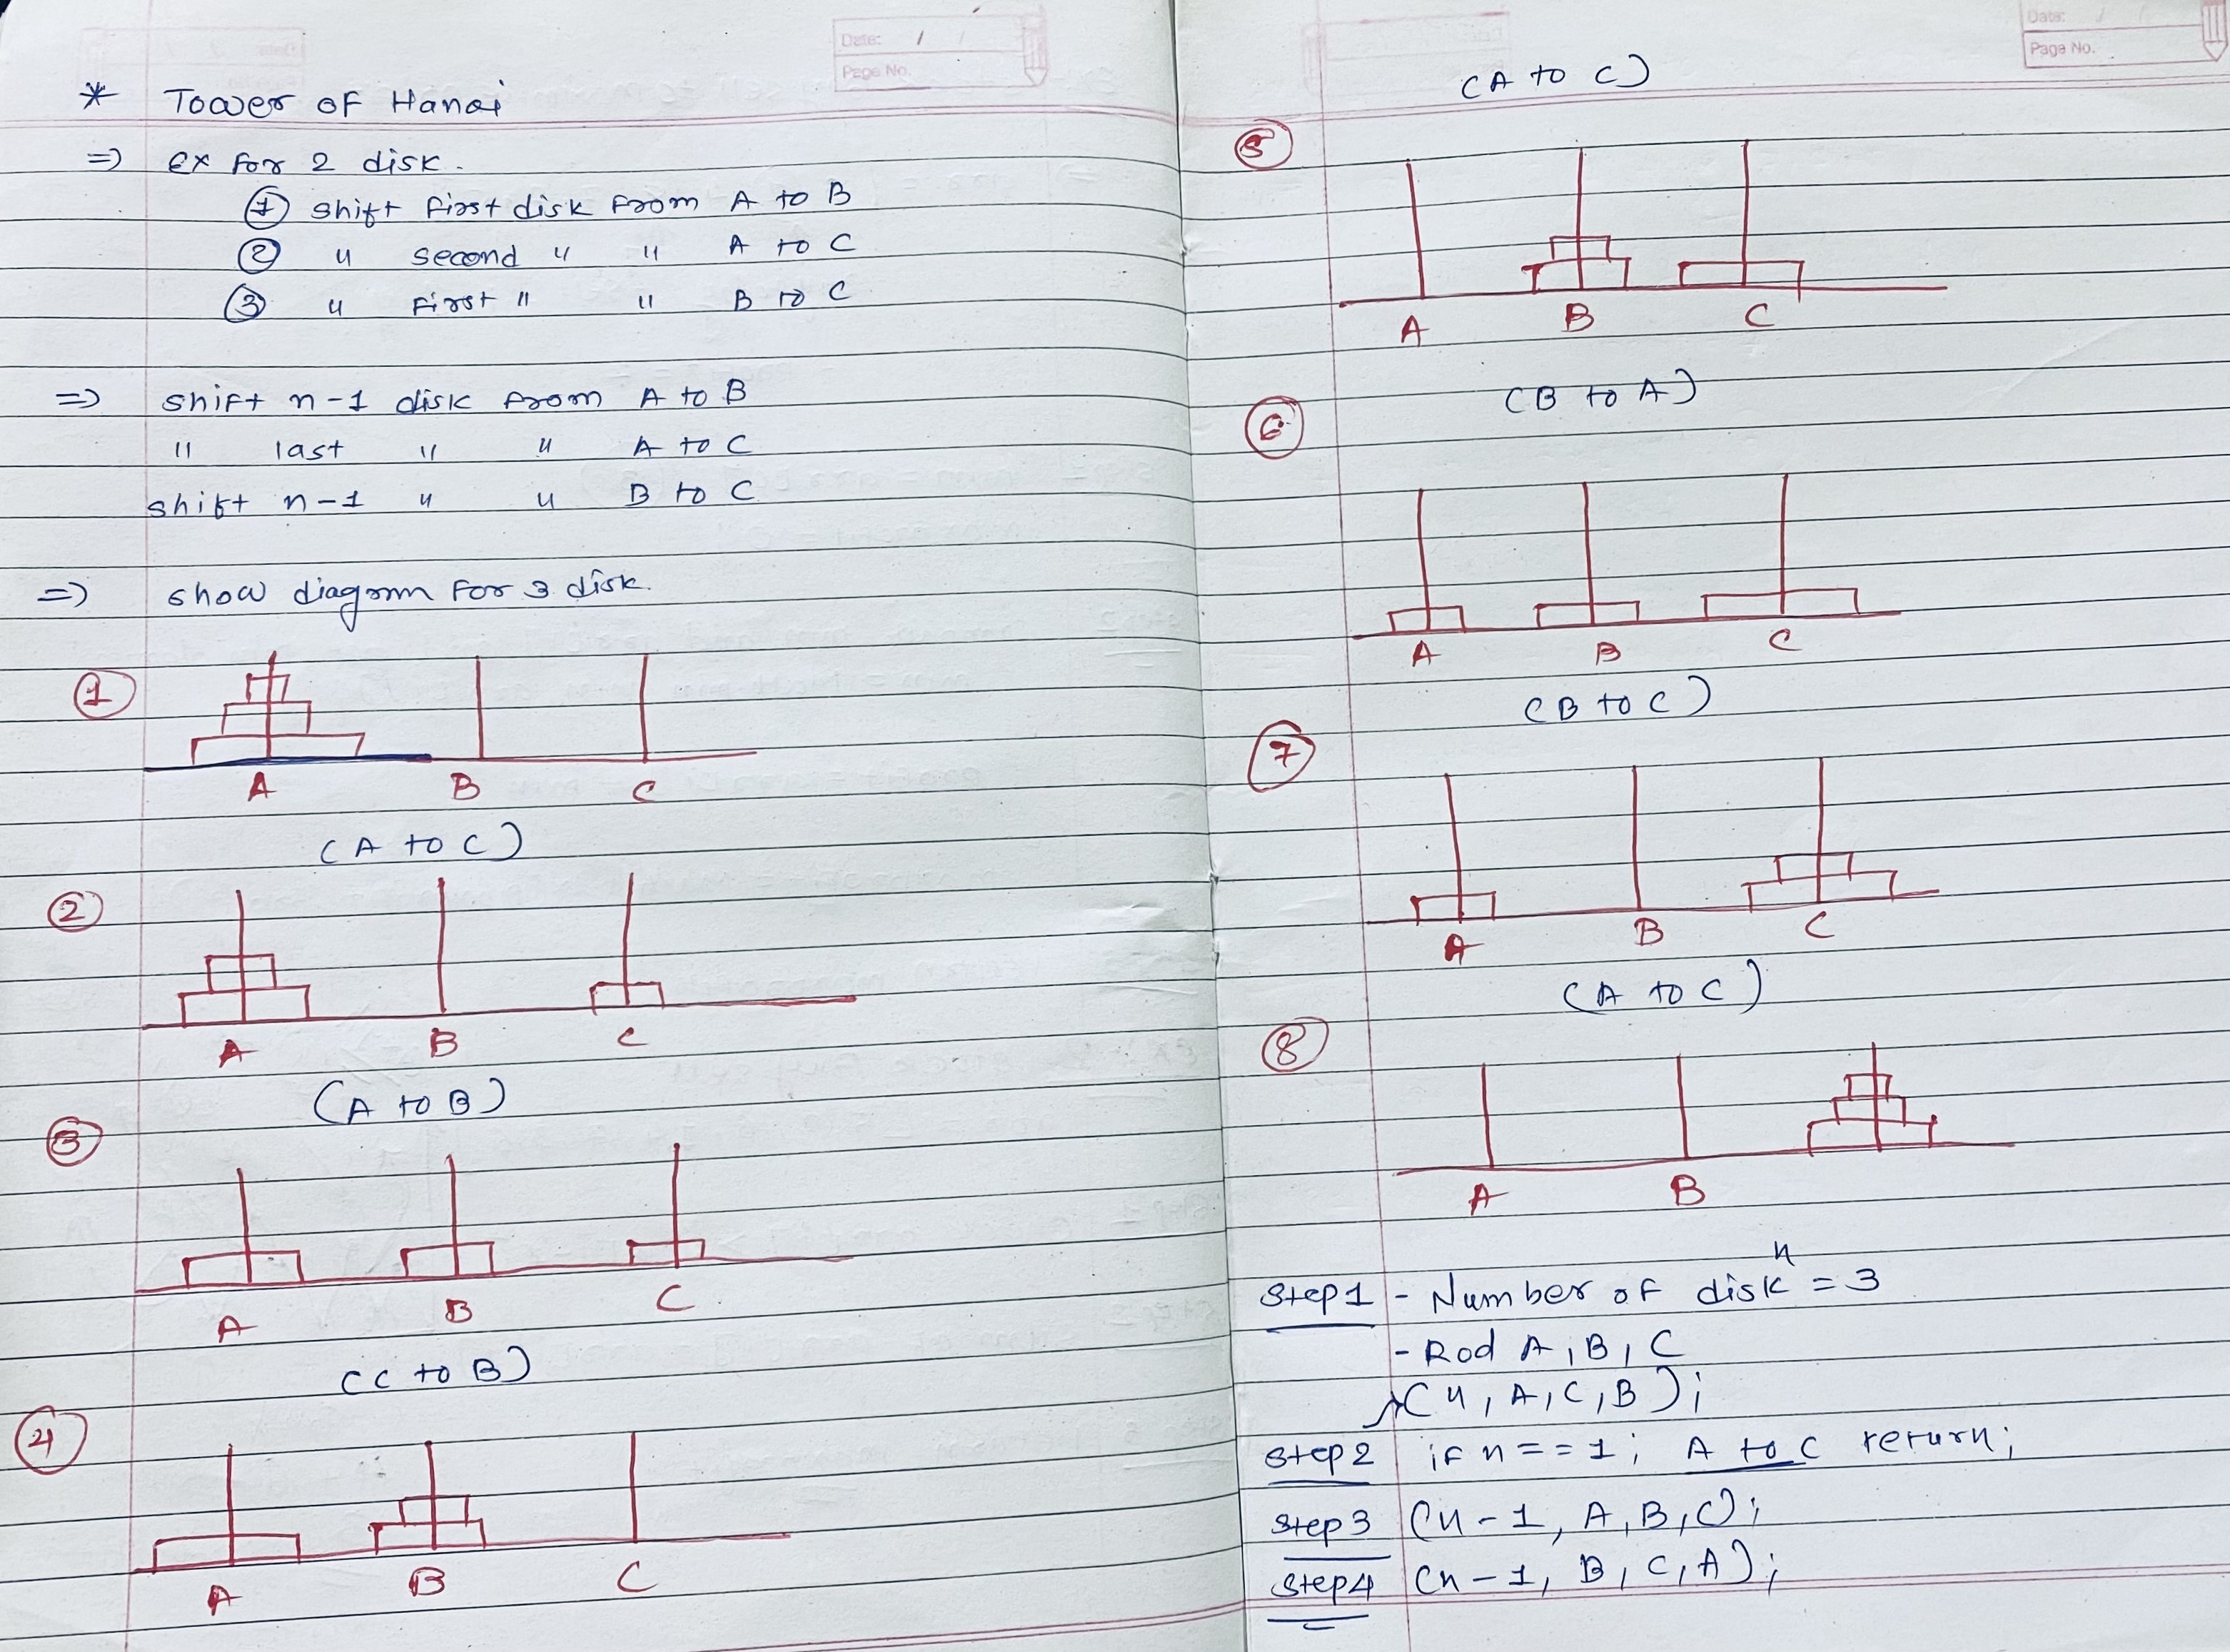 Date: / /
Page No.
* Tower of Hanoi
=> Ex for 2 disk.
① shift first disk from A to B
② " second " " A to C
③ " first " " B to C
=> shift n-1 disk from A to B
" last " " A to C
shift n-1 " " B to C
=> show diagram for 3 disk.
①
A B C
(A to C)
②
A B C
(A to B)
③
A B C
(C to B)
④
A B C
Date: / /
Page No.
(A to C)
⑤
A B C
(B to A)
⑥
A B C
(B to C)
⑦
A B C
(A to C)
⑧
A B
Step1 - Number of disk n = 3
- Rod A, B, C
(n, A, C, B);
Step2 if n == 1; A to C return;
Step3 (n-1, A, B, C);
Step4 (n-1, B, C, A);